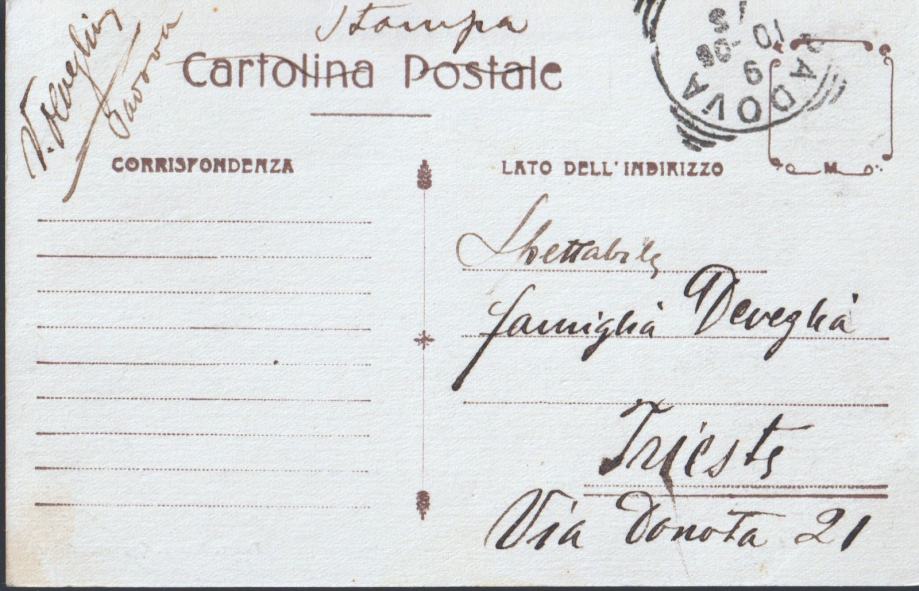 Stampa
Cartolina Postale
Padova
CORRISPONDENZA
LATO DELL'INDIRIZZO
M
PADOVA
9
Spettabile
famiglia Deveglia
Trieste
Via Donota 21